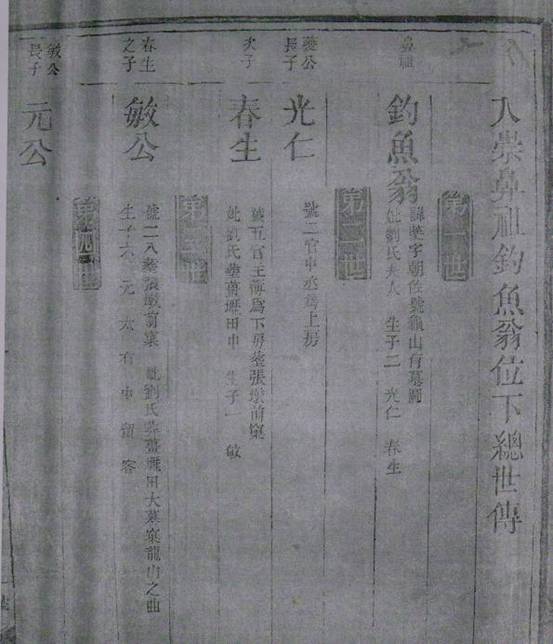 入崇鼻祖釣魚翁位下總世傳
第一世
鼻祖
釣魚翁
諱 字朝佐號龜山有墓
妣劉氏夫人 生子二 光仁 春生
第二世
公
長子
光仁
號二官中丞為上房
次子
春生
號五官主 為下房葬張墩前窠
妣劉氏葬 田中 生子一 敏
第三世
春生
之子
敏公
號二八葬張墩前窠 妣劉氏葬 田大 窠龍山之曲
生子六 元 太 有 中
第四世
敏公
長子
元公